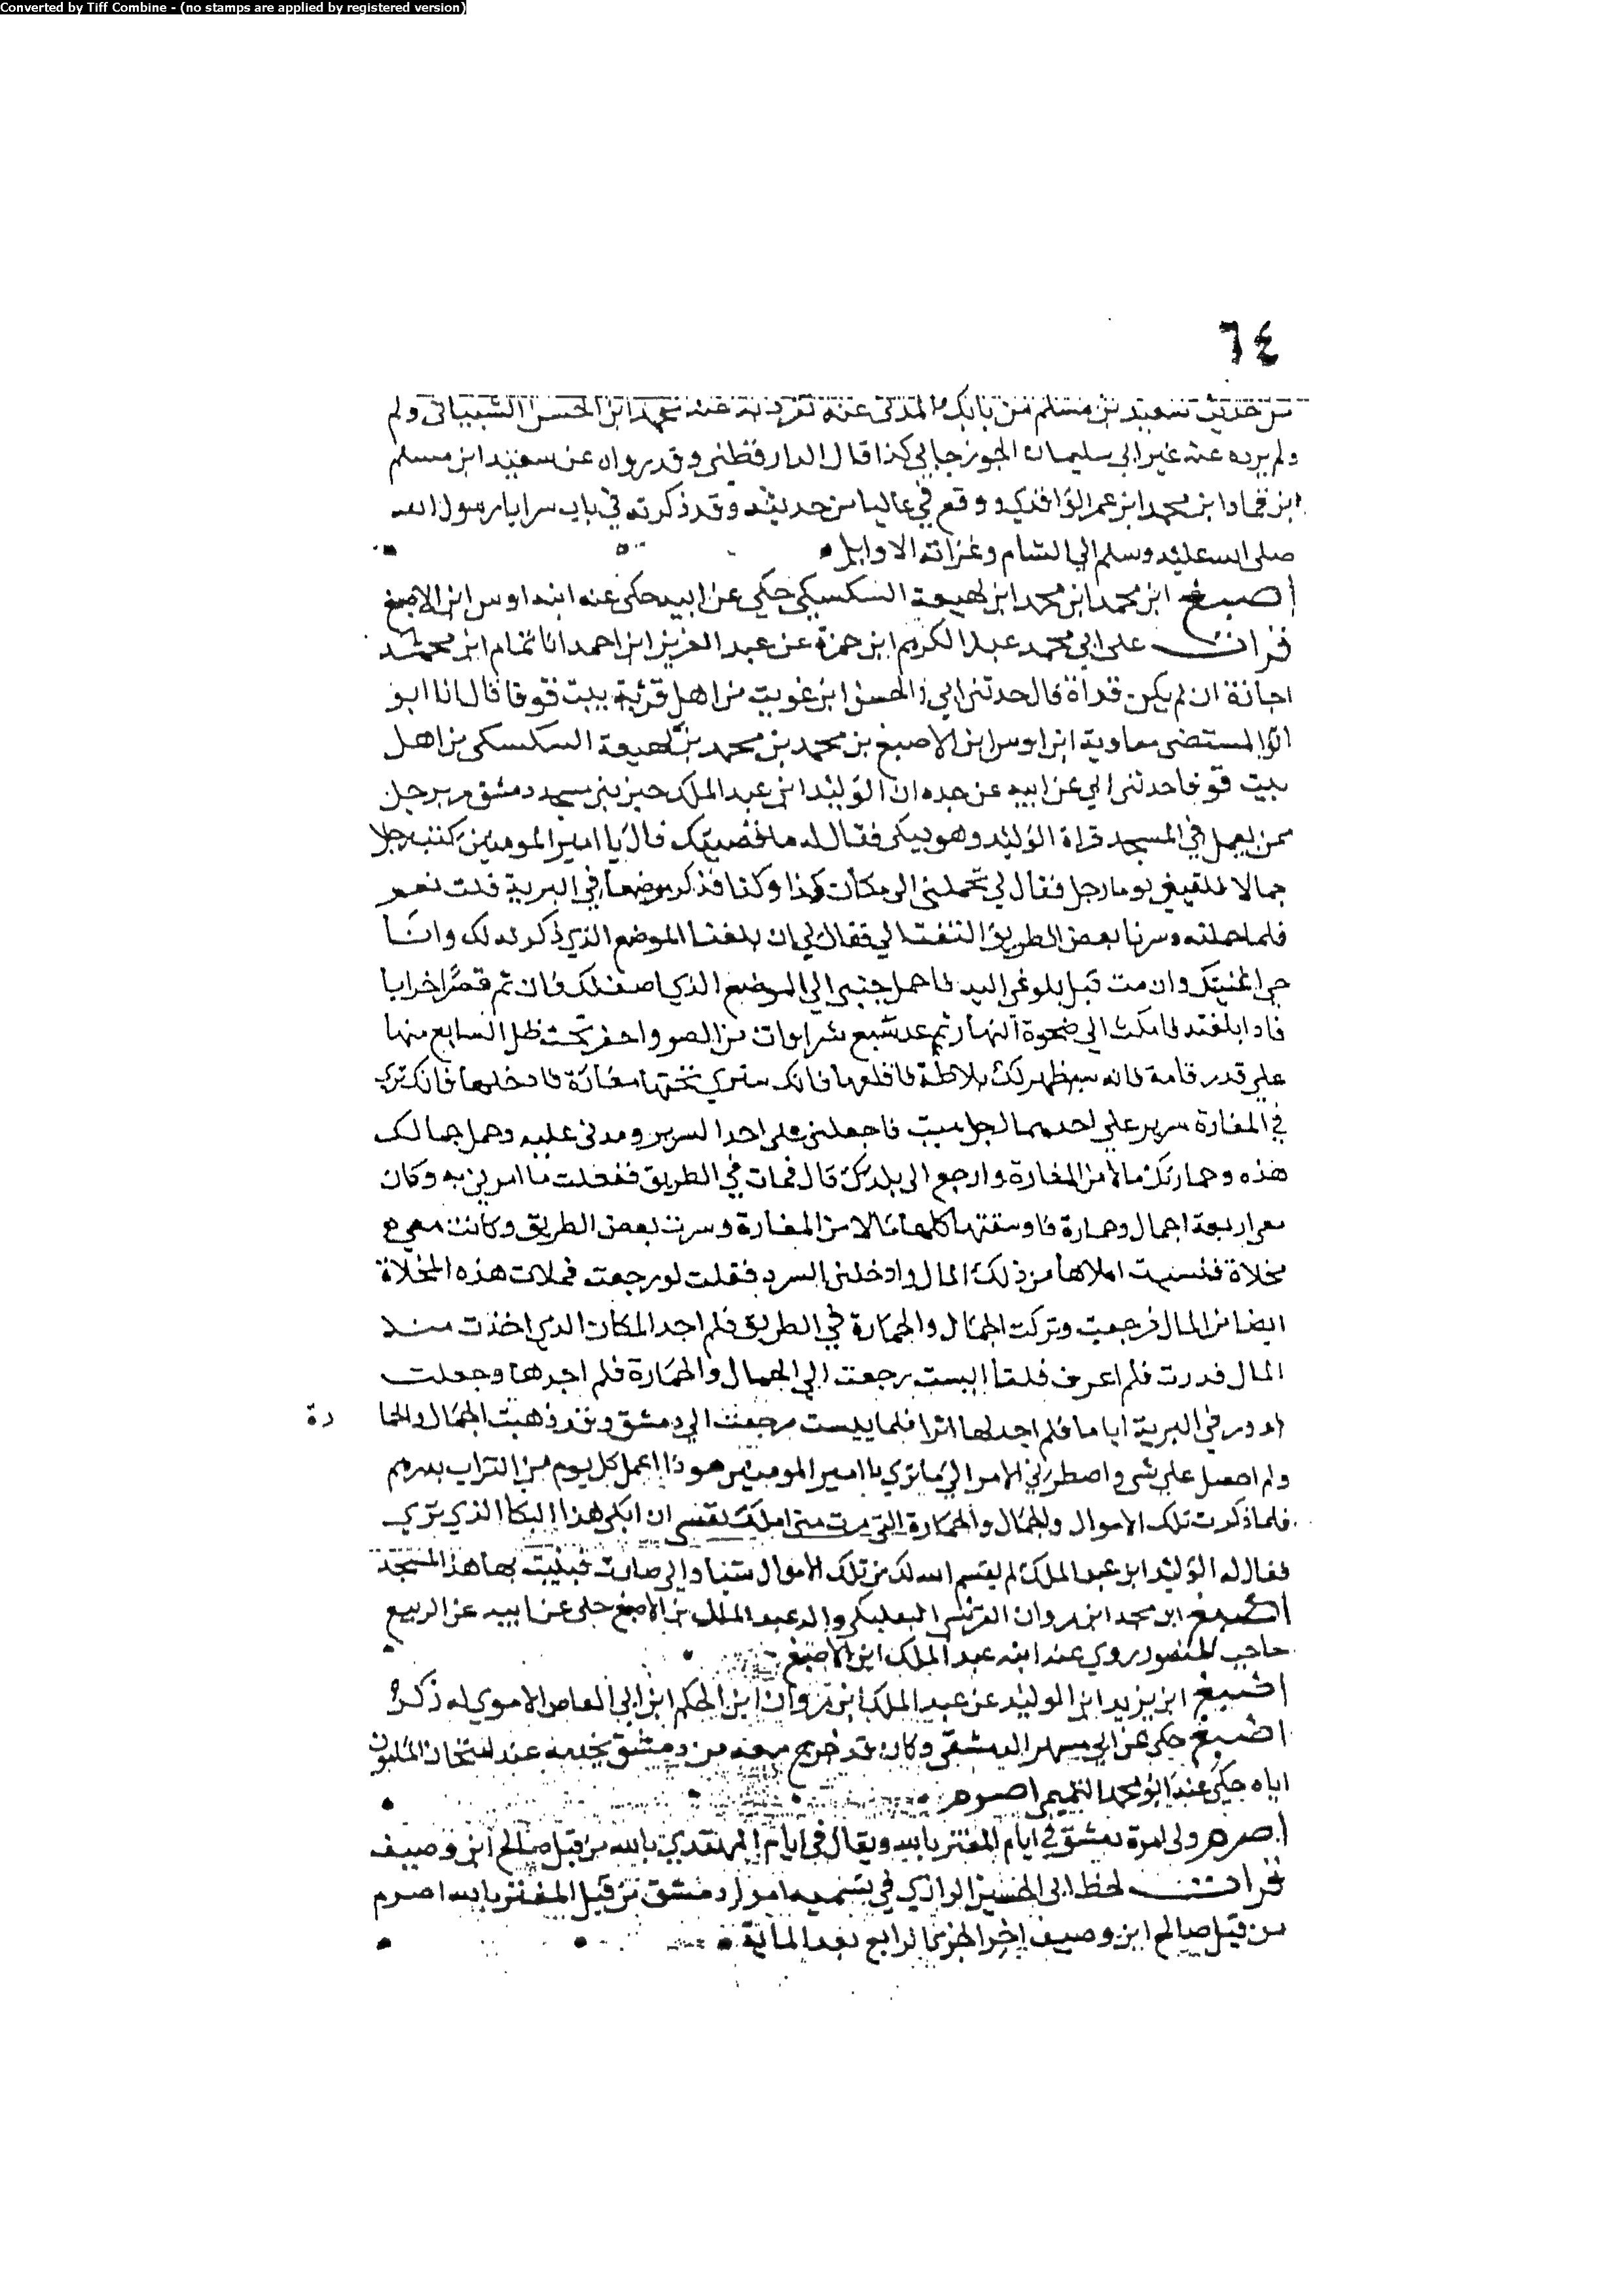 Converted by Tiff Combine - (no stamps are applied by registered version)
٦٤
من حديث سعيد بن مسلم بن بابك المدني عنه تفرد به عنه محمد ابن الحسن الشيباني ولم
ولم يروه عنه غير ابي سليمان الجوزجاني كذا قال الدارقطني وقد رواه عن سعيد ابن مسلم
ابن محمد ابن عمر الواقدي ووقع لي عاليا من حديثه وقد ذكرته في باب سرايا رسول الله
صلى الله عليه وسلم الي الشام وغزاته الاوايل
اصبغ ابن محمد ابن محمد ابن لهيعة السكسكي حكي عن ابيه حكى عنه ابنه اوس ابن الاصبغ
قرات على ابي محمد عبد الكريم ابن حمزة عن عبد العزيز ابن احمد انا تمام ابن محمد
اجازة ان لم يكن قراة قال حدثني ابي الحسن ابن غويث من اهل قرية بيت قوفا قال انا ابو
ابو المستضى معاوية ابن اوس ابن الاصبغ بن محمد بن محمد بن لهيعة السكسكى من اهل
بيت قوفا حدثني ابي عن ابيه عن جده ان الوليد ابن عبد الملك حين بنى مسجد دمشق مر برجل
ممن يعمل في المسجد فراة الوليد وهو يبكى فقال له ما قصيتك قال يا امير المومنين كنت رجلا
جمالا فلقيني يوما رجل فقال لي تحملني الى مكان كذا وكذا فذكر موضعا في البرية قلت نعم
فلما حملته وسرنا بعض الطريق التفت الي فقال لي ان بلغنا الموضع الذي ذكرته لك وانا
حي اغنيتك وان مت قبل بلوغي اليه فاحمل جثتي الي الموضع الذي اصف لك فان ثم قصرا خرابا
فاذا بلغته فامكث الي ضحوة النهار ثم عد سبع شرافات من القصر واحفر تحت ظل السابع منها
علي قدر قامة فانه سيظهر لك بلاطة فاقلعها فانك ستري تحتها مغارة فادخلها فانك تري
في المغارة سرير علي احدهما رجل ميت فاجعلني على احد السرير ومدني عليه وحمل جمالك
هذه وحمارتك مالا من المغارة وارجع الى بلدك قال فمات في الطريق ففعلت ما امرني به وكان
معى اربعة اجمال وحمارة فاوسقتها كلها مالا من المغارة وسرت بعض الطريق وكانت معي
مخلاة فنسيت املاها من ذلك المال وادخلني الشره فقلت لو رجعت فملات هذه المخلاة
ايضا من المال فرجعت وتركت الجمال والحمارة في الطريق فلم اجد المكان الذي اخذت منه
المال فدرت فلم اعرف فلما ايست رجعت الي الجمال والحمارة فلم اجدها وجعلت
ادور في البرية اياما فلم اجد لها اثرا فلما يست رجعت الي دمشق وقد ذهبت الجمال والحما رة
ولم احصل علي شي واضطرني الامر الي ما تري يا امير المومنين هوذا اعمل كل يوم من التراب بدرهم
فلما ذكرت تلك الاموال والجمال والحمارة التي مرت مني املك نفسي ان ابكى هذا البكا الذي تري
فقال له الوليد ابن عبد الملك لم يقسم الله لك من تلك الاموال شيا والي صارت فبنيت بها هذا المسجد
اصبغ ابن محمد ابن مروان القرشي البعلبكي والد عبد الملك بن الاصبغ حكى عن ابيه عن الربيع
حاجب المنصور روي عنه ابنه عبد الملك ابن الاصبغ
اصبغ ابن يزيد ابن الوليد عن عبد الملك ابن مروان ابن الحكم ابن ابي العاص الاموي له ذكر
اصبغ حكى عن ابي مسهر الدمشقي وكان قد خرج معه من دمشق بحديثه عند امتحان المامون
اياه حكى عنه ابو محمد التميمي اصرم
اصرم ولى امرة دمشق في ايام المعتز بالله ويقال في ايام المهتدي بالله من قبل صالح ابن وصيف
قرات لحظ ابى الحسين الرازي في تسميه امراء دمشق من قبل المعتز بالله اصرم
من قبل صالح ابن وصيف اخر الجزء الرابع بعد المائة